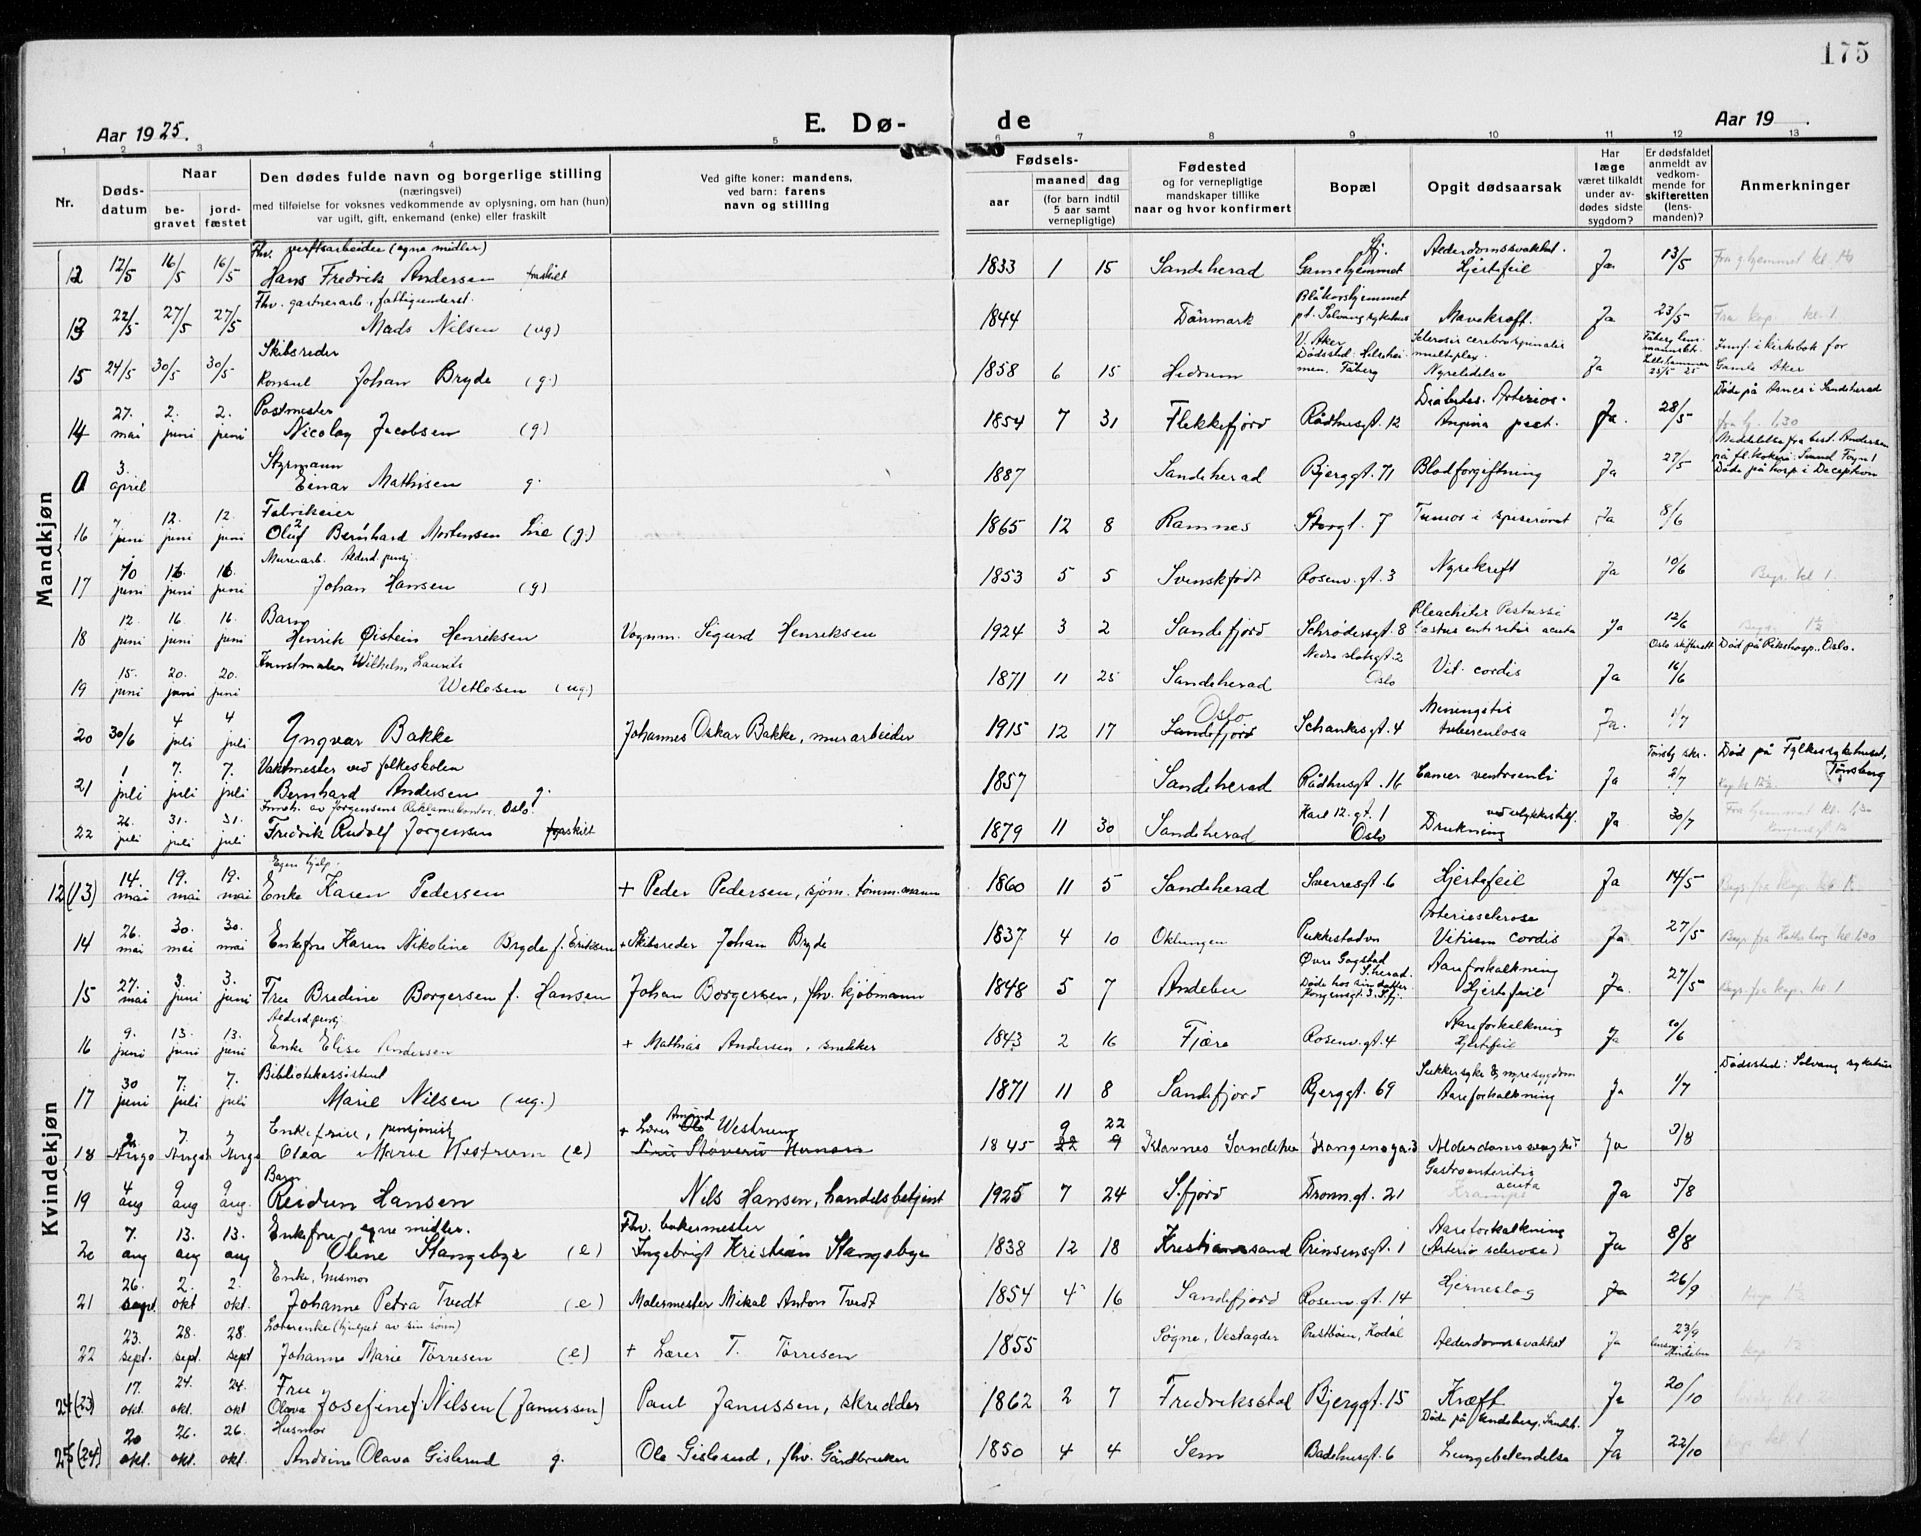 175
Aar 1925.
E. Dø-
de
Aar 19
1 2 3 4 5 6 7 8 9 10 11 12 13
Nr.
Døds-
datum
Naar
be-
gravet
jord-
fæstet
Den dødes fulde navn og borgerlige stilling
(næringsvei)
med tilføielse for voksnes vedkommende av oplysning, om han (hun)
var ugift, gift, enkemand (enke) eller fraskilt
Ved gifte koner: mandens,
ved barn: farens
navn og stilling
Fødsels-
aar
maaned dag
(for barn indtil
5 aar samt
vernepligtige)
Fødested
og for vernepligtige
mandskaper tillike
naar og hvor konfirmert
Bopæl
Opgit dødsaarsak
Har
læge
været tilkaldt
under av-
dødes sidste
sygdom?
Er dødsfaldet
anmeldt av
vedkom-
mende for
skifteretten
(lens-
manden)?
Anmerkninger
Mandkjøn
Fhv. verftsarbeider (egne midler)
12 12/5 16/5 16/5 Hans Fredrik Andersen fraskilt 1833 1 15 Sandeherad Gamlehjemmet Sfj. Alderdomssvakhet. Hjertefeil Ja 13/5
Fhv. gartnerarb., fattigunderst.
13 22/5 27/5 27/5 Mads Nilsen (ug) 1844 Danmark Blåkorshjemmet pt. Solvang sykehus Mavekræft. Ja 23/5 Fra kap. kl. 1
Skibsreder
15 24/5 30/5 30/5 Konsul Johan Bryde (g.) 1858 6 15 Hedrum V. Aker Dødssted: Hilshei- men. Fåberg Sclerosis cerebrospinalis multiplex. Nyrelidelse Ja Fåberg lens- mannskt. Lillehammer 25/5 25 Innf. i kirkebok for Gamle Aker
Postmester
14 27. mai 2. juni 2. juni Nicolay Jacobsen (g) 1854 7 31 Flekkefjord Rådhusgt. 12 Diabetes. Arterios- Angina pect. Ja. 28/5 Døde på Asnes i Sandeherad
Styrmann
0 3. april Einar Mathisen g. 1887 Sandeherad Bjerggt. 71 Blodforgiftning Ja 27/5 Meddelelse fra best. Andersen på fl. kokeri: Svend Foyn 1 Døde på hosp. i Deception
Fabrikeier
16 7. juni 12. juni 12. juni Oluf Bernhard Mortensen Lie (g.) 1865 12 8 Ramnes Storgt. 7 Tumor i spiserøret Ja 8/6
Murerarb. Alderd. pensj.
17 10 juni 16. juni 16. juni Johan Hansen (g) 1853 5 5 Svenskfødt Rosenv. gt. 3 Nyrekreft Ja 10/6 Begr. kl 1.
Barn
18 12. juni 16. juni 16. juni Henrik Øistein Henriksen Vognm. Sigurd Henriksen 1924 3 2 Sandefjord Schrødersgt. 8 Ja 12/6
Kunstmaler Wilhelm Laurits
19 15. juni 20. juni 20. juni Wetlesen (ug.) 1871 11 25 Sandeherad Nedre slotsgt. 2 Oslo Vit. cordis Ja Oslo skifterett 16/6 Død på Rikshosp., Oslo.
20 30/6 4 juli 4 juli Yngvar Bakke Johannes Oskar Bakke, murarbeider 1915 12 17 Oslo Sandefjord Schankesgt. 4 Meningstis tuberculosa Ja. 1/7
Vaktmester ved folkeskolen
21 1 juli 7. juli 7. juli Bernhard Andersen g. 1857 Sandeherad Rådhusgt. 16 Cancer ventriculi Ja Tønsb. skr. 2/7 Død på Fylkessykehuset, Tønsberg
Inneh. av Jørgensens Reklamekontor. Oslo.
22 26. juli 31. juli 31. juli Fredrik Rudolf Jørgensen fraskilt 1879 11 30 Sandeherad Karl 12. gt. 1 Oslo Drukning ved ulykkestilf. Ja 30/7
Kvindekjøn
Egen hjelp.
12 (13) 14. mai 19. mai 19. mai Enke Karen Pedersen + Peder Pedersen, sjøm. tømm.mann 1860 11 5 Sandeherad Sverresgt. 6 Hjertefeil Ja 14/5
14 26. mai 30. mai 30. mai Enkefru Karen Nikoline Bryde f. Eriksen + Skibsreder Johan Bryde 1837 4 10 Oklungen Pukkestadvn Arteriosclerose Vitium cordis Ja 27/5
15 27. mai 3. juni 3. juni Fru Bredine Borgersen f. Hansen Johan Borgersen, fhv. kjøbmann 1848 5 7 Andebu Øvre Gogstad S.herad. Døde hos sin datter Kongensgt. 3. Sfj. Aareforkalkning Hjertefeil Ja. 27/5 Begr. fra kap. kl. 1
Alderd. pensj.
16 9. juni 13. juni 13. juni Enke Elise Andersen + Mathias Andersen, snekker 1843 2 16 Fjære Rosenv. gt. 4 Aareforkalkning Hjertefeil Ja 10/6
Bibliotekassistent
17 30 juni 7. juli 7. juli Marie Nilsen (ug.) 1871 11 8 Sandefjord Bjerggt. 69 Sukkersyke & nyresygdom Aareforkalkning Ja 1/7 Dødssted: Solvang sykehus
Enkefrue, pensjonist
18 2. Augs 7. Augs 7 Augs Olea Marie Westrum (e) + Lærer Amund Ole Westrum 1845 9 22 22 9 Klavnes Sandehe Kongensga. 3 Alderdomssvagh. Ja 3/8
Barn
19 4 aug 9 aug 9 aug. Reidun Hansen Nils Hansen, handelsbetjent 1925 7 24 S.fjord Dronn.gt. 21 Gastroenteritis acuta Krampe Ja 5/8
Enkefru, egne midler.
20 7. aug 13. aug 13. aug Oline Stangebye (e) Fhv. bakermester Ingebrigt Kristian Stangebye 1838 12 18 Kristiansand Prinsensgt. 1 Aareforkalkning (Arterio sclerose) Ja 8/8
Enke, husmor
21 26. sept. 2. okt 2. okt. Johanne Petra Tvedt (e) Malermester Mikal Anton Tvedt 1854 4 16 Sandefjord Rosenv. gt. 14 Hjerneslag Ja 26/9
Lærerenke (hjulpet av sin sønn)
22 23. sept. 28. sept. 28. sept Johanne Marie Tørresen (e) + Lærer T. Tørresen 1855 Søgne, Vestagder Prestbøen, Kodal Alderdomssvakhet Ja 23/9
Fru
24 (23) 17. okt. 24. okt. 24. okt. Olava Josefine f. Nilsen (Janussen) Paul Janussen, skredder 1862 2 7 Fredrikstad Bjerggt. 15 Kræft Ja 20/10
Husmor
25 (24) 20 okt. 26. okt. 26. okt. Andrine Olava Gislerud g. Ole Gislerud, fhv. Gårdbruker 1850 4 4 Sem Badehusgt. 6 Lungebetendelse Ja 22/10